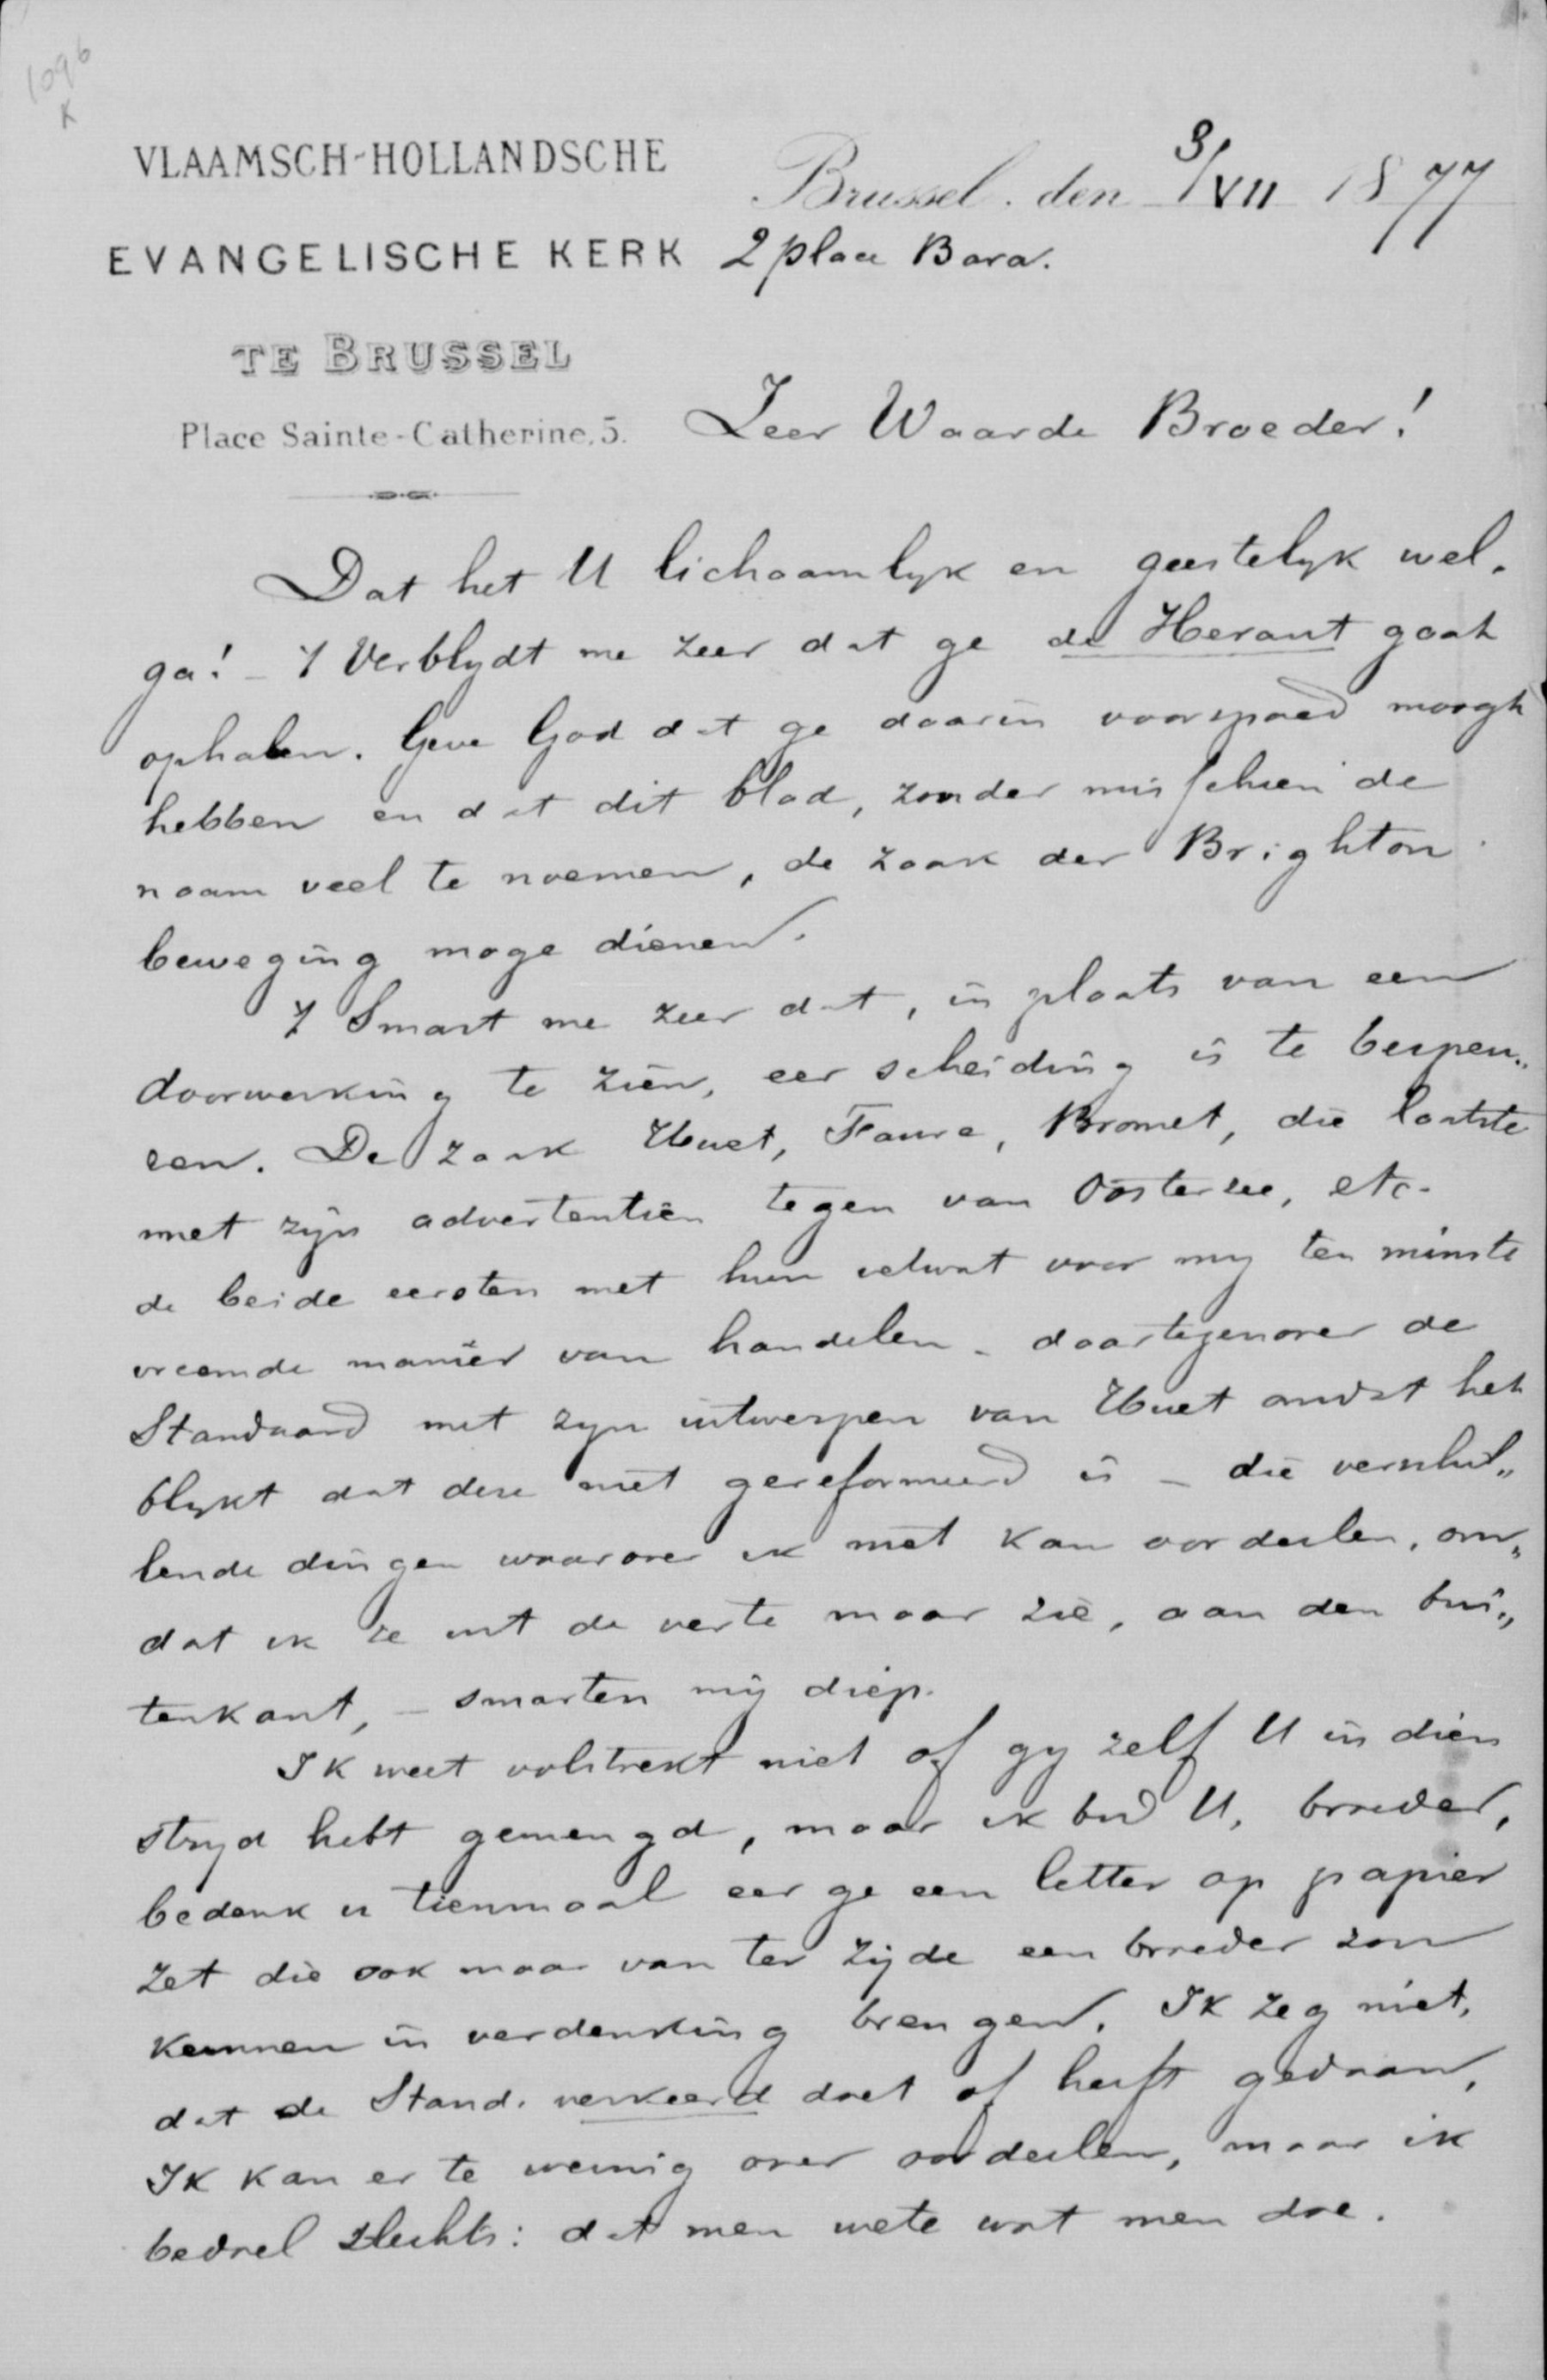 1096
K
VLAAMSCH-HOLLANDSCHE
EVANGELISCHE KERK
TE BRUSSEL
Place Sainte-Catherine, 5.
Brussel. den 3/VII 1877
2 place Bara.
Zeer Waarde Broeder!
Dat het U lichaamlyk en geestelyk wel.
ga! - 't Verblydt me zeer dat ge de Heraut gaat
ophalen. Geve God dat ge daarin voorspoed moogt
hebben en dat dit blad, zonder misschien de
naam veel te noemen, de zaak der Brighton
beweging moge dienen.
't Smart me zeer dat, in plaats van een
doorwerking te zien, eer scheiding is te bespeu„
ren. De zaak Huet, Faure, Bromet, die laatste
met zyn advertentiën tegen van Oosterzee, etc.
de beide eersten met hun ietwat voor my ten minste
vreemde manier van handelen - daartegenover de
Standaard met zyn uitwerpen van Huet omdat het
blykt dat deze niet gereformeerd is - die verschil„
lende dingen waarover ik niet kan oordeelen, om„
dat ik ze uit de verte maar zie, aan den bui„
tenkant, - smarten mij diep.
Ik weet volstrekt niet of gy zelf U in dien
stryd hebt gemengd, maar ik bid U, broeder,
bedenk u tienmaal eer ge een letter op papier
zet die ook maar van ter zijde een broeder zou
kunnen in verdenking brengen. Ik zeg niet,
dat de Stand. verkeerd doet of heeft gedaan,
Ik kan er te weinig over oordeelen, maar ik
bedoel slechts: dat men wete wat men doe.